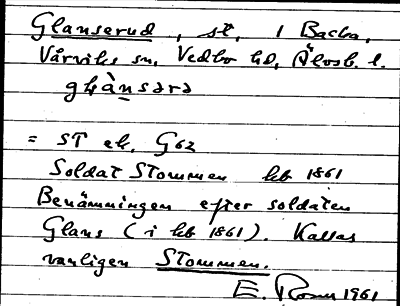 Glanserud, st, i Backa,
Vårviks sn, Vedbo hd, Älvsb. l.
glànsərə
= ST ek. G62
Soldat Stommen hb 1861
Benämningen efter soldaten
Glans (i hb 1861). Kallas
vanligen Stommen.
E. Rosm 1961